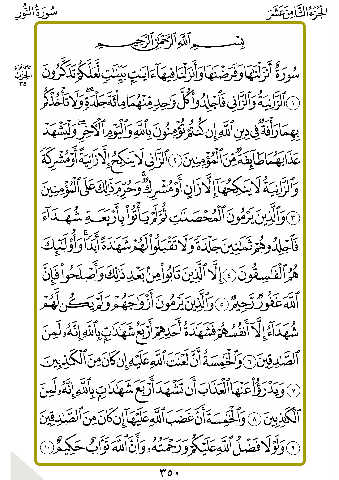 الجزء الثامن عشر
سورة النور
بِسْمِ اللَّهِ الرَّحْمَٰنِ الرَّحِيمِ
سُورَةٌ أَنزَلْنَٰهَا وَفَرَضْنَٰهَا وَأَنزَلْنَا فِيهَآ ءَايَٰتٍۭ بَيِّنَٰتٍ لَّعَلَّكُمْ تَذَكَّرُونَ
﴿١﴾ ٱلزَّانِيَةُ وَٱلزَّانِى فَٱجْلِدُوا۟ كُلَّ وَٰحِدٍ مِّنْهُمَا مِا۟ئَةَ جَلْدَةٍ وَلَا تَأْخُذْكُم
بِهِمَا رَأْفَةٌ فِى دِينِ ٱللَّهِ إِن كُنتُمْ تُؤْمِنُونَ بِٱللَّهِ وَٱلْيَوْمِ ٱلْءَاخِرِ وَلْيَشْهَدْ
عَذَابَهُمَا طَآئِفَةٌ مِّنَ ٱلْمُؤْمِنِينَ ﴿٢﴾ ٱلزَّانِى لَا يَنكِحُ إِلَّا زَانِيَةً أَوْ مُشْرِكَةً
وَٱلزَّانِيَةُ لَا يَنكِحُهَآ إِلَّا زَانٍ أَوْ مُشْرِكٌ وَحُرِّمَ ذَٰلِكَ عَلَى ٱلْمُؤْمِنِينَ
﴿٣﴾ وَٱلَّذِينَ يَرْمُونَ ٱلْمُحْصَنَٰتِ ثُمَّ لَمْ يَأْتُوا۟ بِأَرْبَعَةِ شُهَدَآءَ
فَٱجْلِدُوهُمْ ثَمَٰنِينَ جَلْدَةً وَلَا تَقْبَلُوا۟ لَهُمْ شَهَٰدَةً أَبَدًا وَأُو۟لَٰٓئِكَ
هُمُ ٱلْفَٰسِقُونَ ﴿٤﴾ إِلَّا ٱلَّذِينَ تَابُوا۟ مِنۢ بَعْدِ ذَٰلِكَ وَأَصْلَحُوا۟ فَإِنَّ
ٱللَّهَ غَفُورٌ رَّحِيمٌ ﴿٥﴾ وَٱلَّذِينَ يَرْمُونَ أَزْوَٰجَهُمْ وَلَمْ يَكُن لَّهُمْ
شُهَدَآءُ إِلَّآ أَنفُسُهُمْ فَشَهَٰدَةُ أَحَدِهِمْ أَرْبَعُ شَهَٰدَٰتٍۭ بِٱللَّهِ إِنَّهُۥ لَمِنَ
ٱلصَّٰدِقِينَ ﴿٦﴾ وَٱلْخَٰمِسَةُ أَنَّ لَعْنَتَ ٱللَّهِ عَلَيْهِ إِن كَانَ مِنَ ٱلْكَٰذِبِينَ
﴿٧﴾ وَيَدْرَؤُا۟ عَنْهَا ٱلْعَذَابَ أَن تَشْهَدَ أَرْبَعَ شَهَٰدَٰتٍۭ بِٱللَّهِ إِنَّهُۥ لَمِنَ
ٱلْكَٰذِبِينَ ﴿٨﴾ وَٱلْخَٰمِسَةَ أَنَّ غَضَبَ ٱللَّهِ عَلَيْهَآ إِن كَانَ مِنَ ٱلصَّٰدِقِينَ
﴿٩﴾ وَلَوْلَا فَضْلُ ٱللَّهِ عَلَيْكُمْ وَرَحْمَتُهُۥ وَأَنَّ ٱللَّهَ تَوَّابٌ حَكِيمٌ ﴿١٠﴾
٣٥٠